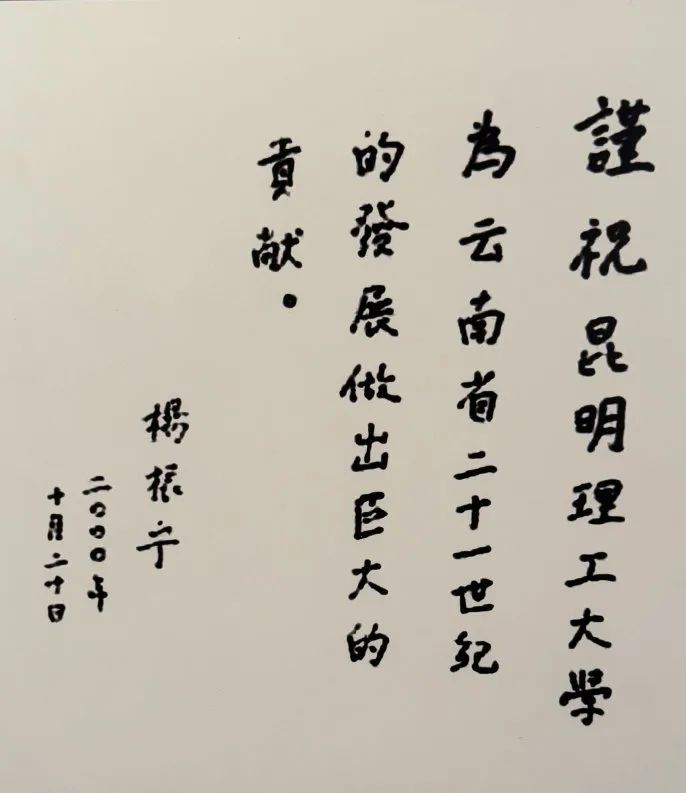 謹祝昆明理工大學
為云南省二十一世紀
的發展做出巨大的
貢献。
楊振宁
二〇〇〇年
十月二十日